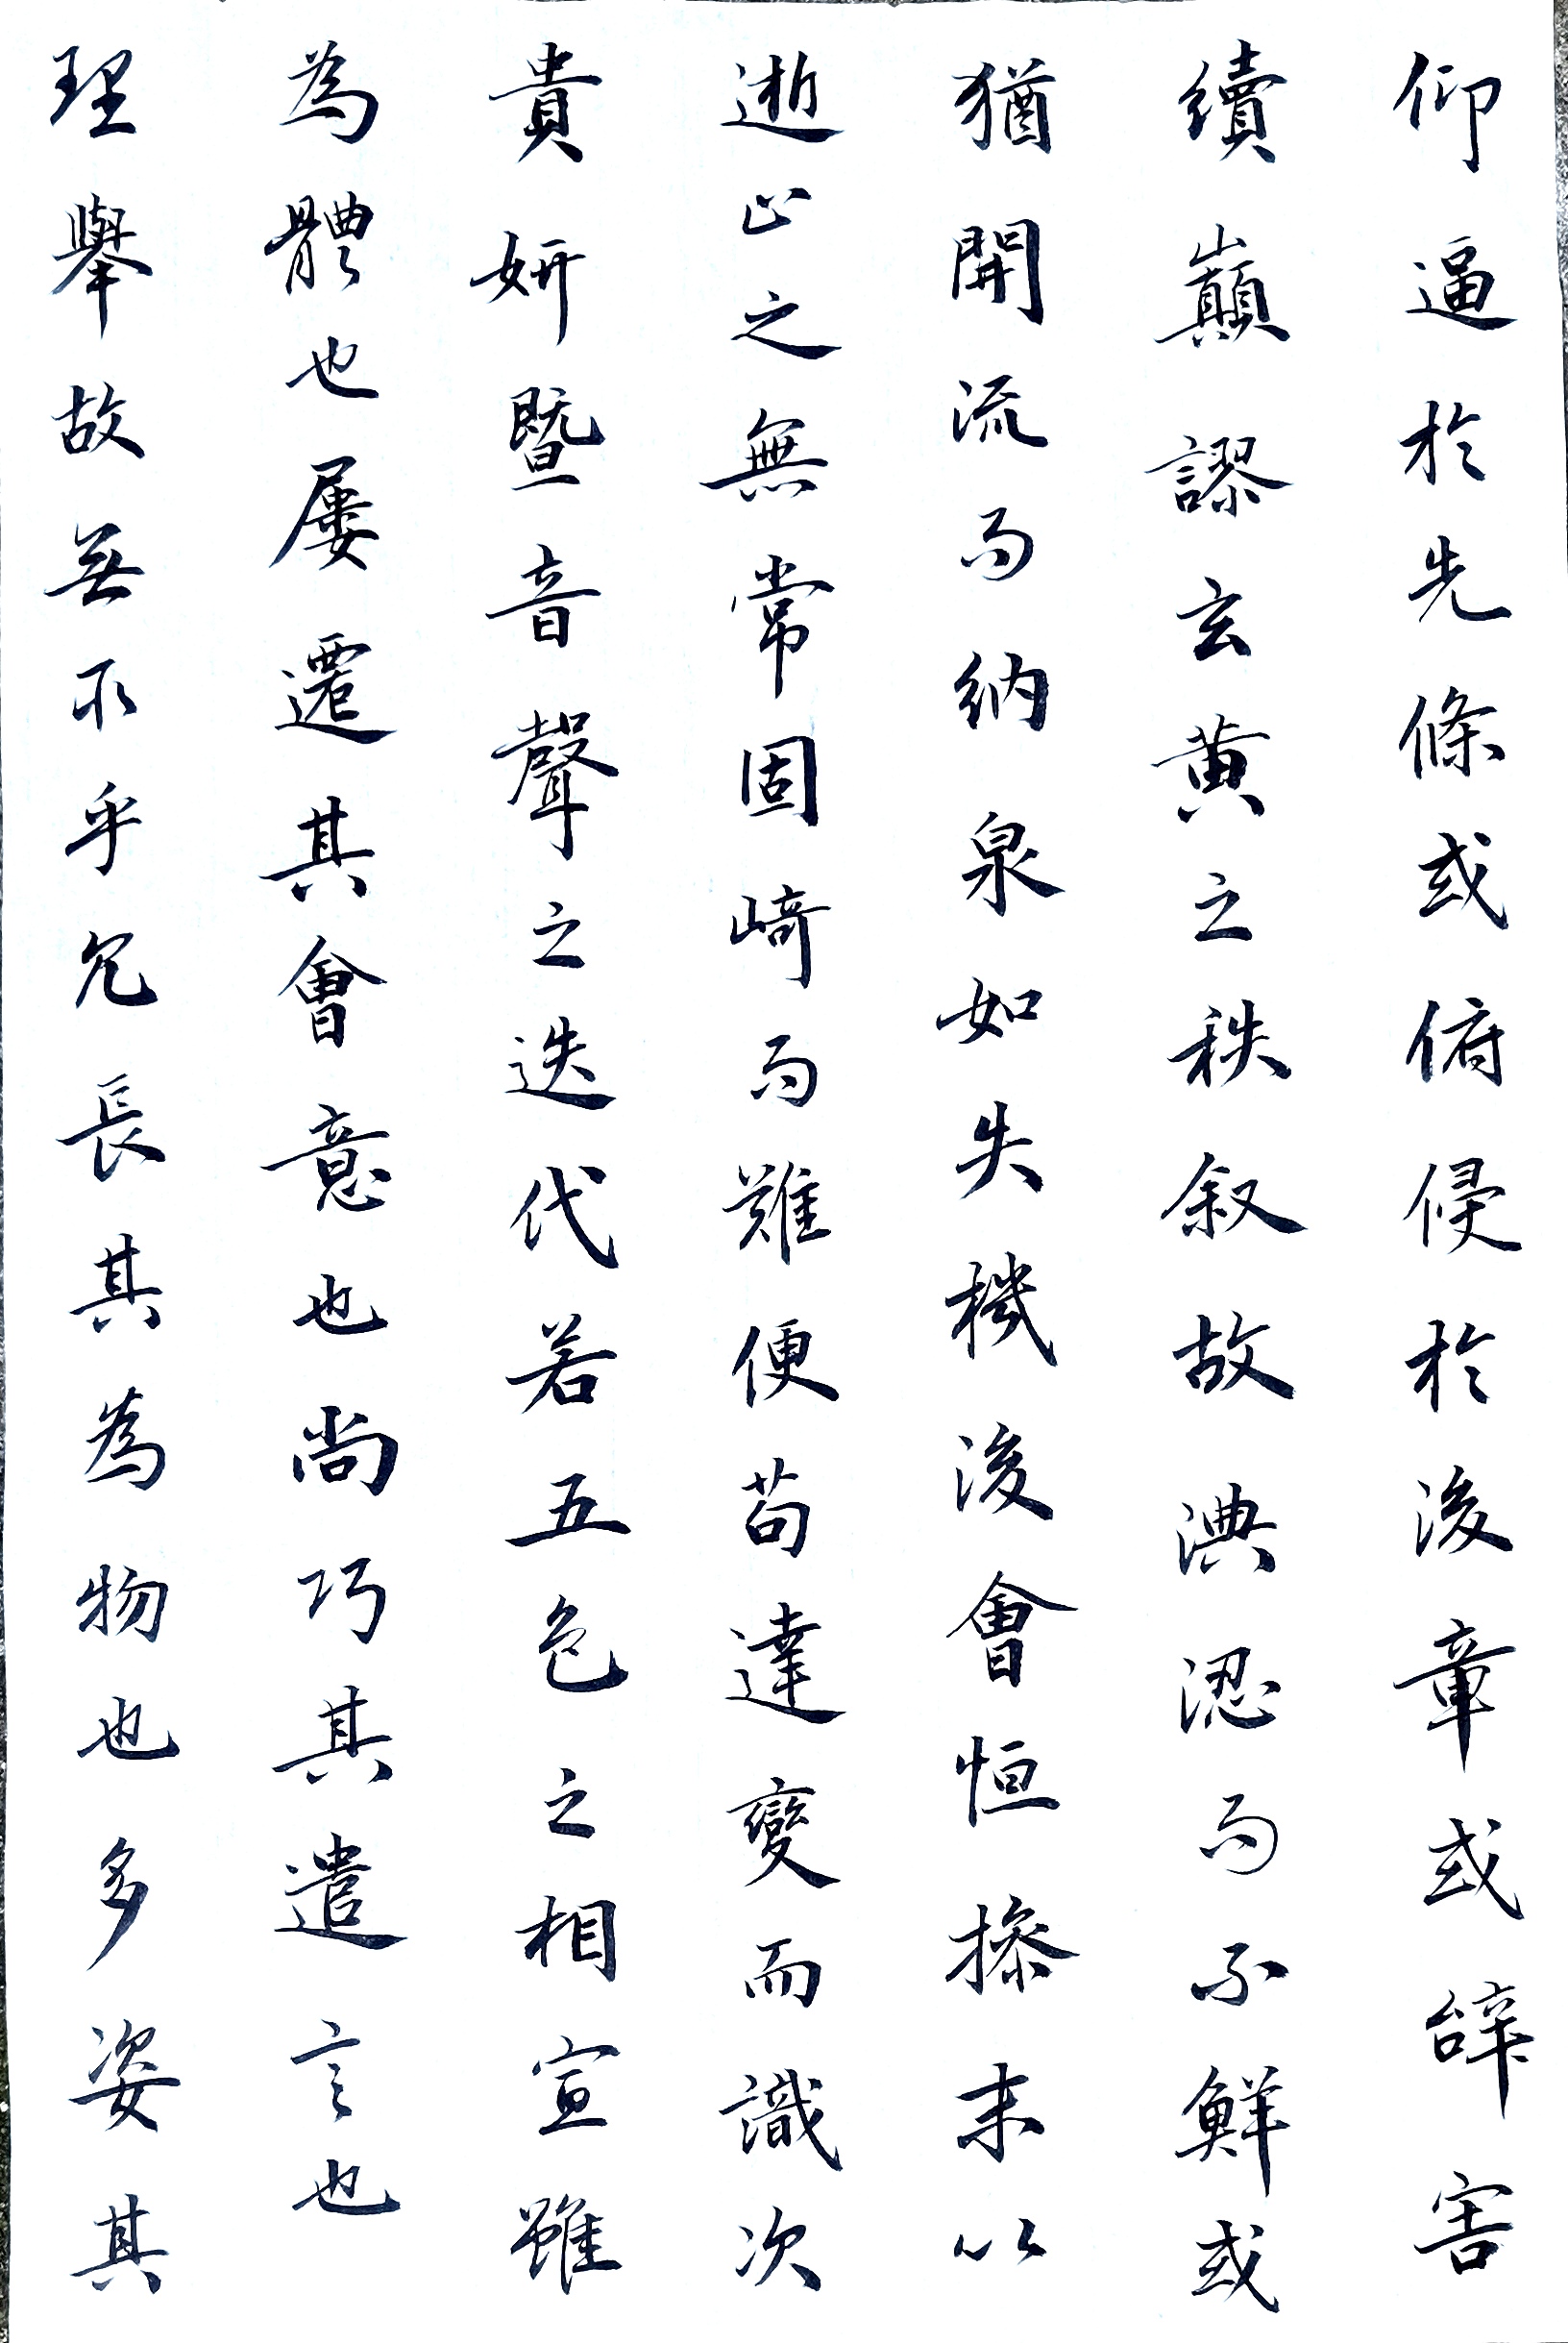 理舉故無取乎冗長其為物也多姿其
為體也屢遷其會意也尚巧其遣言也
貴妍暨音聲之迭代若五色之相宣雖
逝止之無常固崎而難便苟達變而識次
猶開流而納泉如失機後會恒操末以
續巔謬玄黃之秩叙故淟涊而不鮮或
仰逼於先條或俯侵於後章或辭害